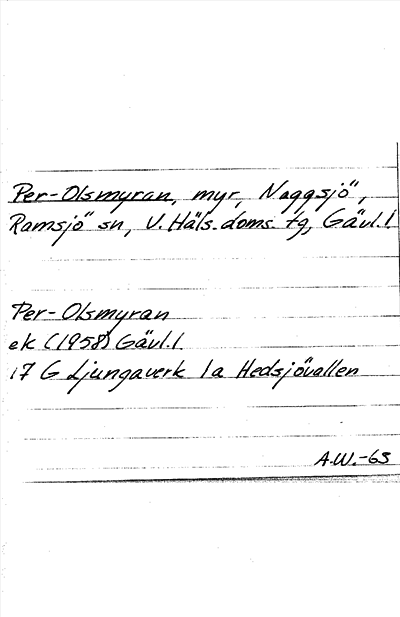 Per-Olsmyran, myr, Naggsjö,
Ramsjö sn, V. Häls. doms. tg, Gävl. l.
Per-Olsmyran
ek (1958) Gävl. l.
17 G Ljungaverk 1a Hedsjövallen
A.W.-63